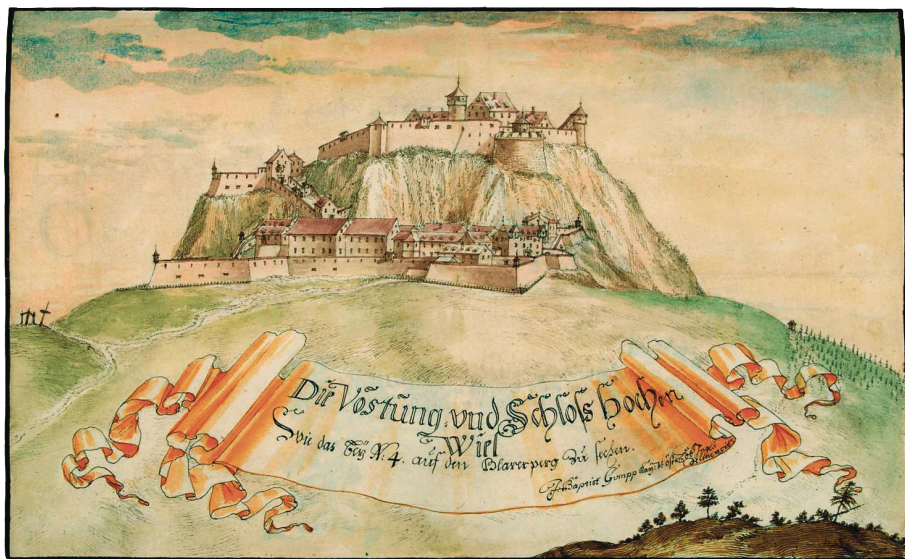 Die Vöstung und Schloss Hochen
Wiel
wie das Bey N. 4. auf den Blarerperg Zu sechen.
Joh Baptist Gumpp